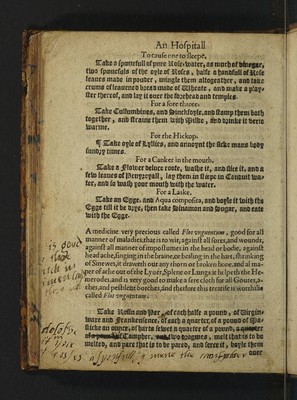 An Hospitall
To cause one to sleepe.
Take a spoonefull of pure Rose-water, as much of vineger,
two spoonefuls of the oyle of Roses, halfe a handfull of Rose
leaues made in pouder, mingle them altogeather, and take
crums of leauened bread made of Wheate, and make a play-
ster thereof, and lay it ouer the forehead and temples.
For a sore throte.
Take Cullumbines, and Sinckfoyle, and stamp them both
together, and straine them with Milke, and drinke it verie
warme.
For the Hickop.
¶ Take oyle of Lyllies, and annoynt the sicke mans body
sundry times.
For a Canker in the mouth.
Take a Flower deluce roote, washe it, and slice it, and a
few leaues of Penyryall, lay them in steepe in Conduit wa-
ter, and so wash your mouth with the water.
For a Laske.
Take an Egge, and Aqua composita, and boyle it with the
Egge till it be drye, then take Sinamon and Sugar, and eate
with the Egge.
A medicine very precious called Flos vnguentum, good for all
manner of maladies, that is to wit, against all sores, and wounds,
against all manner of impostumes in the head or bodie, against
head ache, singing in the braine, or bealing in the hart, shrinking
of Sinewes, it draweth out any thorn or broken bone, and al ma-
per of ache out of the Lyuer, Splene or Lungs it helpeth the He-
merodes, and is very good to make a sere cloth for all Goutes, a-
ches, and pestilent botches, and therfore this treatise is worthilie
called Flos vnguentum.
Take Rosin and Per, of each halfe a pound, of Virgin-
ware and Frankensence, of each a quarter, of a pound of
an ounce, of harts sewet a quarter of a pound,
Camphor, and two dragmes, melt that is to be
melted, and pare that is to be pared, and searce it, boyle them
ouer
is good